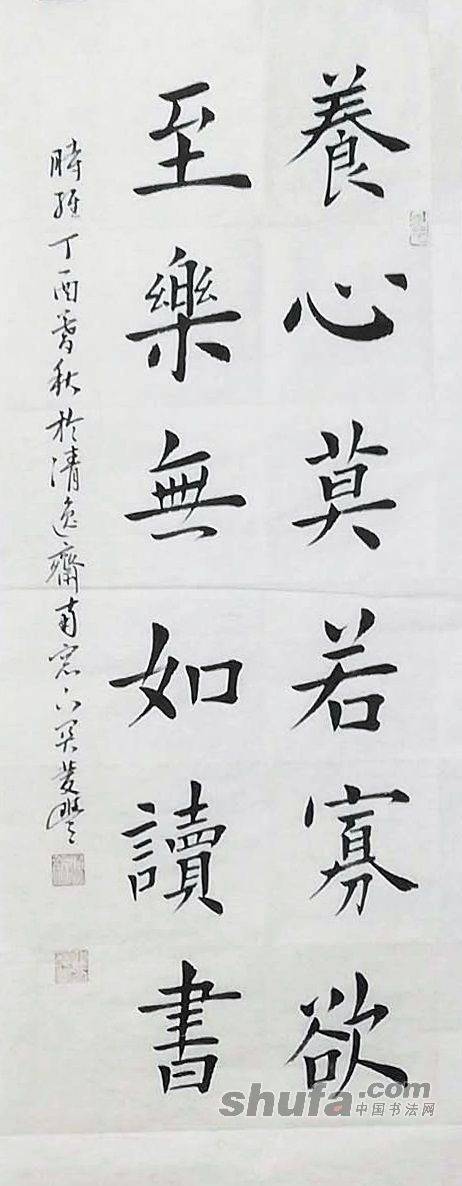 養心莫若寡欲
至樂無如讀書
時維丁酉暮秋於清逸齋南窓下吳
shufa.com
中国书法网